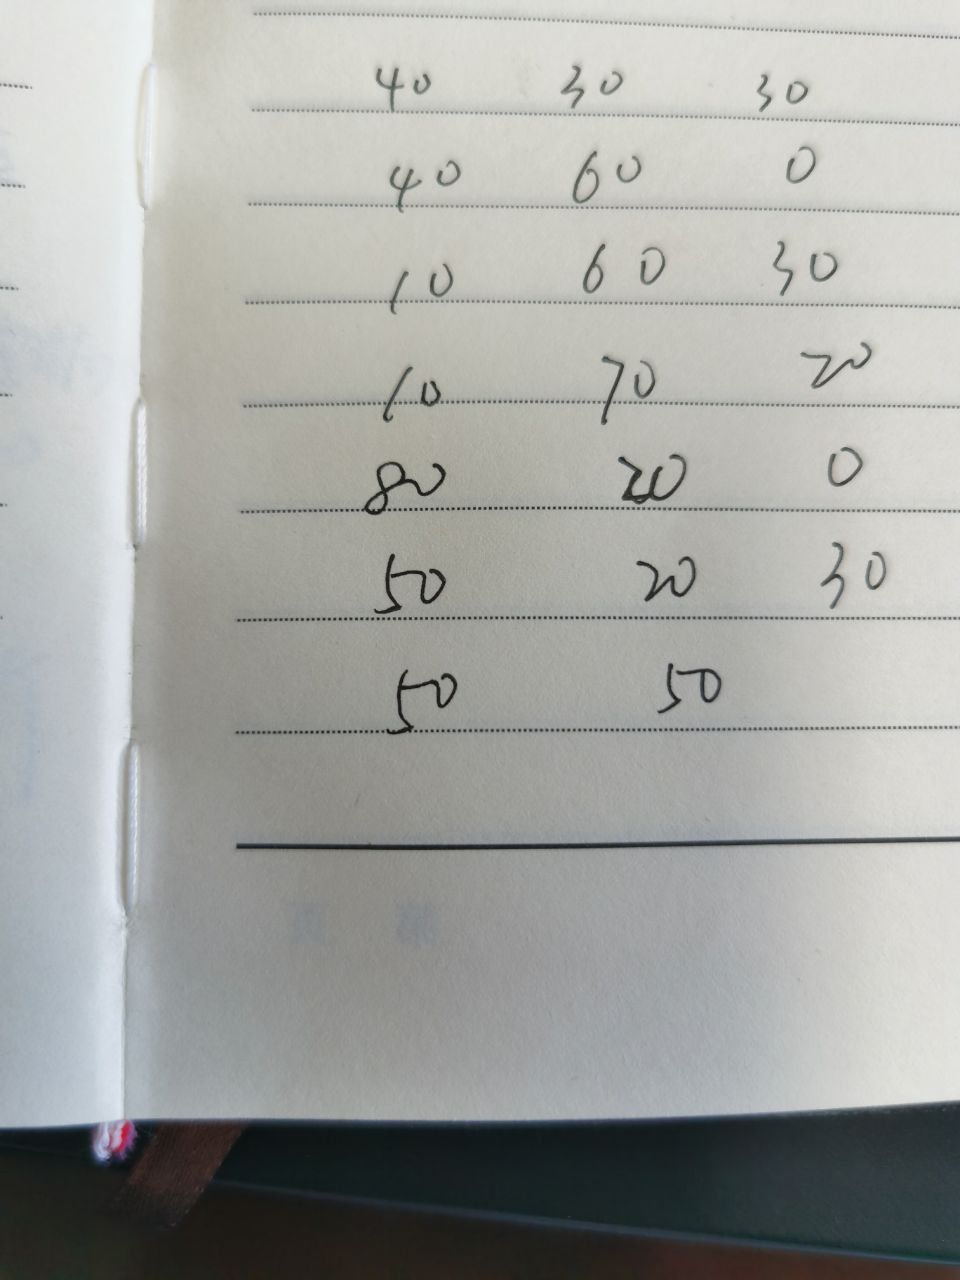 40 30 30
40 60 0
10 60 30
10 70 20
80 20 0
50 20 30
50 50